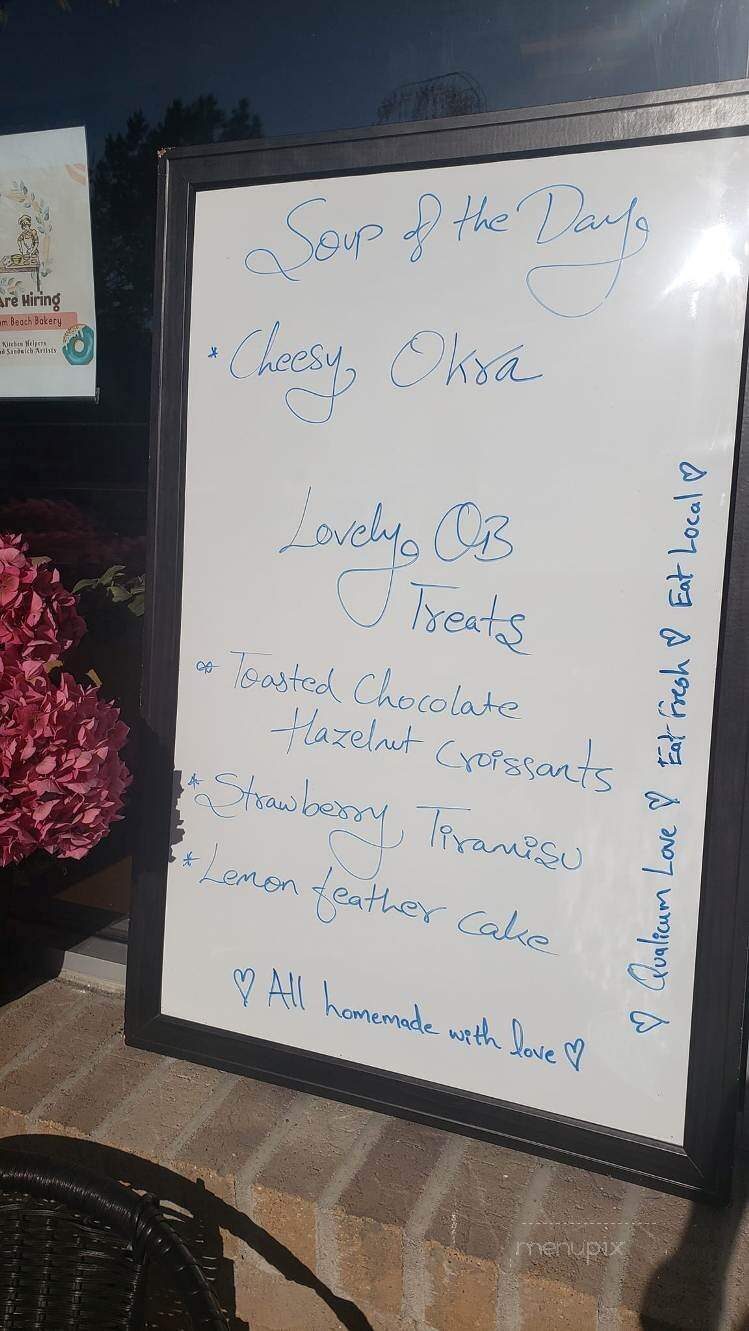 Soup of the Day
* Cheesy Okra
Lovely QB
Treats
* Toasted Chocolate
Hazelnut Croissants
* Strawberry Tiramisu
* Lemon feather cake
♡ All homemade with love ♡
♡ Qualicum Love ♡ Eat Fresh ♡ Eat Local ♡
Are Hiring
m Beach Bakery
Kitchen Helpers
Sandwich Artists
menupix